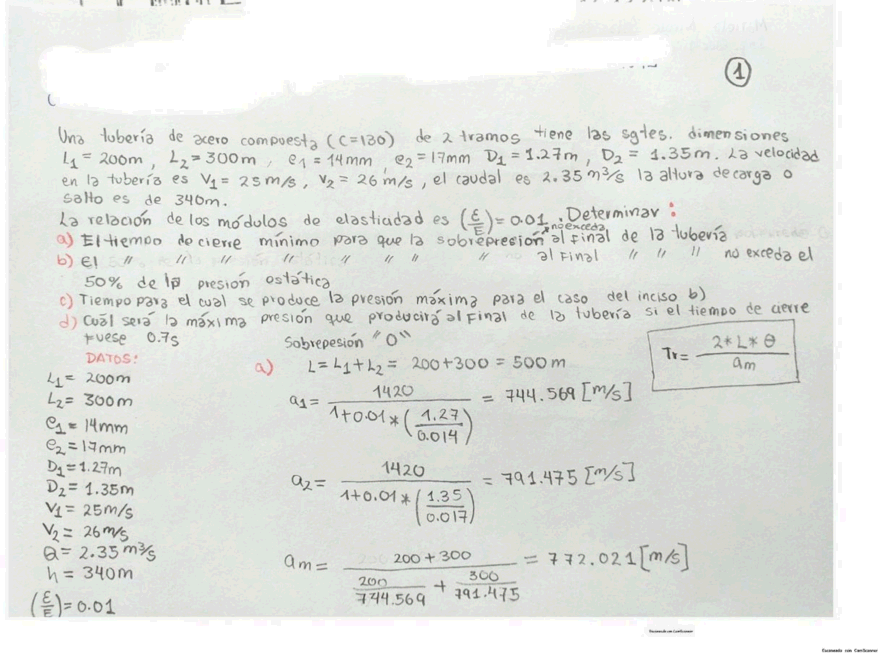 1
Una tubería de acero compuesta (C=130) de 2 tramos tiene las sgtes. dimensiones
L₁ = 200m , L₂ = 300m , e₁ = 14mm , e₂ = 17mm D₁ = 1.27m , D₂ = 1.35m. La velocidad
en la tubería es V₁ = 25m/s , V₂ = 26 m/s , el caudal es 2.35 m³/s la altura de carga o
salto es de 340m.
La relación de los módulos de elasticidad es (ε/E) = 0.01 . Determinar :
a) El tiempo de cierre mínimo para que la sobrepresión no exceda al final de la tubería
b) El // // // // // // // // al final // // // no exceda el
50% de la presión estática
c) Tiempo para el cual se produce la presión máxima para el caso del inciso b)
d) Cuál será la máxima presión que producirá al final de la tubería si el tiempo de cierre
fuese 0.7s
Sobrepesión "0"
DATOS:
L₁ = 200m
L₂ = 300m
e₁ = 14mm
e₂ = 17mm
D₁ = 1.27m
D₂ = 1.35m
V₁ = 25m/s
V₂ = 26m/s
Q = 2.35 m³/s
h = 340m
(ε/E) = 0.01
a) L = L₁ + L₂ = 200 + 300 = 500 m
Tr = 2 * L * θ / am
a₁ = 1420 / 1+0.01*(1.27/0.014) = 744.569 [m/s]
a₂ = 1420 / 1+0.01*(1.35/0.017) = 791.475 [m/s]
am = 200 + 300 / 200/744.569 + 300/791.475 = 772.021 [m/s]
Escaneado con CamScanner
Escaneado con CamScanner